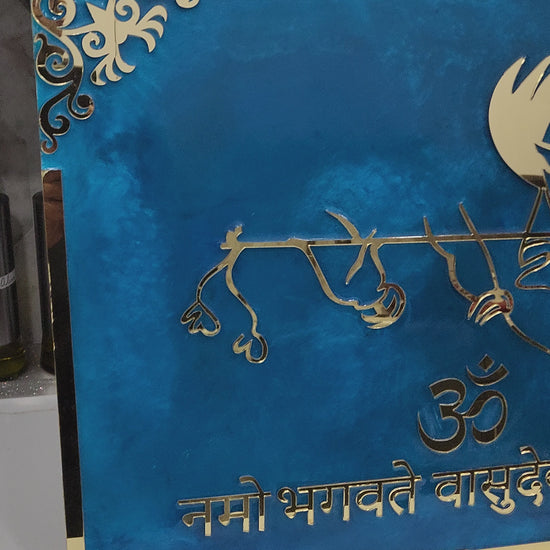 ॐ
नमो भगवते वासुदे